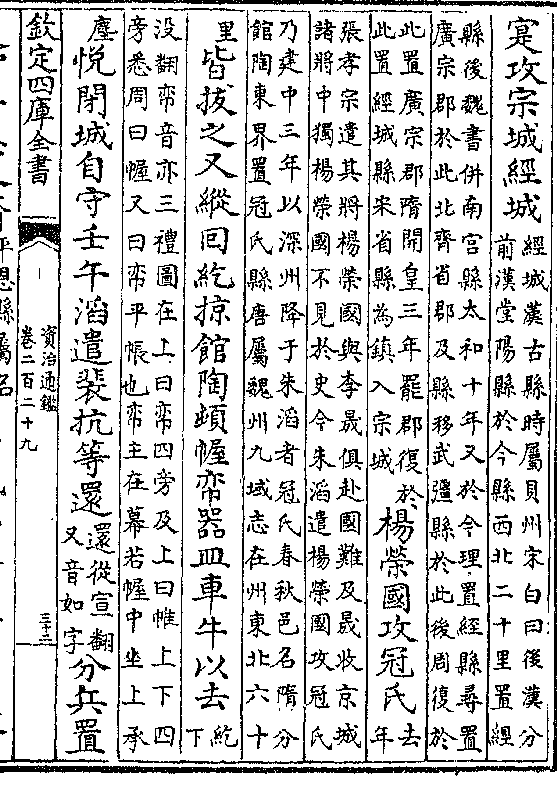 寔攻宗城經城經城漢古縣時屬貝州宋白曰後漢分
前漢堂陽縣於今縣西北二十里置經
縣後魏書併南宮縣太和十年又於今理置經縣尋置
廣宗郡於此北齊省郡及縣移武彊縣於此後周復於
此置廣宗郡隋開皇三年罷郡復於
此置經城縣宋省縣為鎮入宗城
楊榮國攻冠氏去
年
張孝宗遣其將楊榮國與李晟俱赴國難及晟收京城
諸將中獨楊榮國不見於史今朱滔遣楊榮國攻冠氏
乃建中三年以深州降于朱滔者冠氏春秋邑名隋分
館陶東界置冠氏縣唐屬魏州九域志在州東北六十
里皆拔之又縱回紇掠館陶頓幄帟器皿車牛以去紇
下
没翻帟音亦三禮圖在上曰帟四旁及上曰帷上下四
旁悉周曰幄又曰帟平帳也帟主在幕若幄中坐上承
塵悅閉城自守壬午滔遣裴抗等還還從宣翻
又音如字
分兵置
欽定四庫全書
資治通鑑
卷二百二十九
三十三